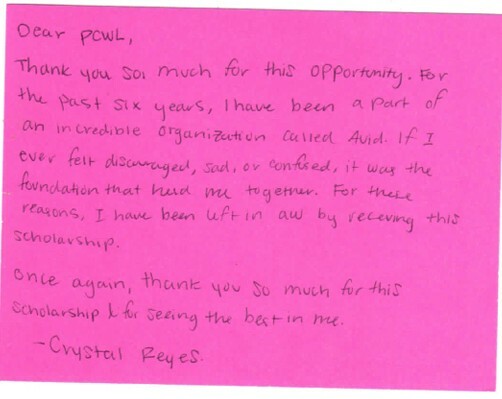 Dear PCWL,
Thank you so much for this opportunity. For
the past six years, I have been a part of
an incredible organization called Avid. If I
ever felt discouraged, sad, or confused, it was the
foundation that held me together. For these
reasons, I have been left in aw by receving this
scholarship.
Once again, thank you so much for this
scholarship & for seeing the best in me.
-Crystal Reyes.